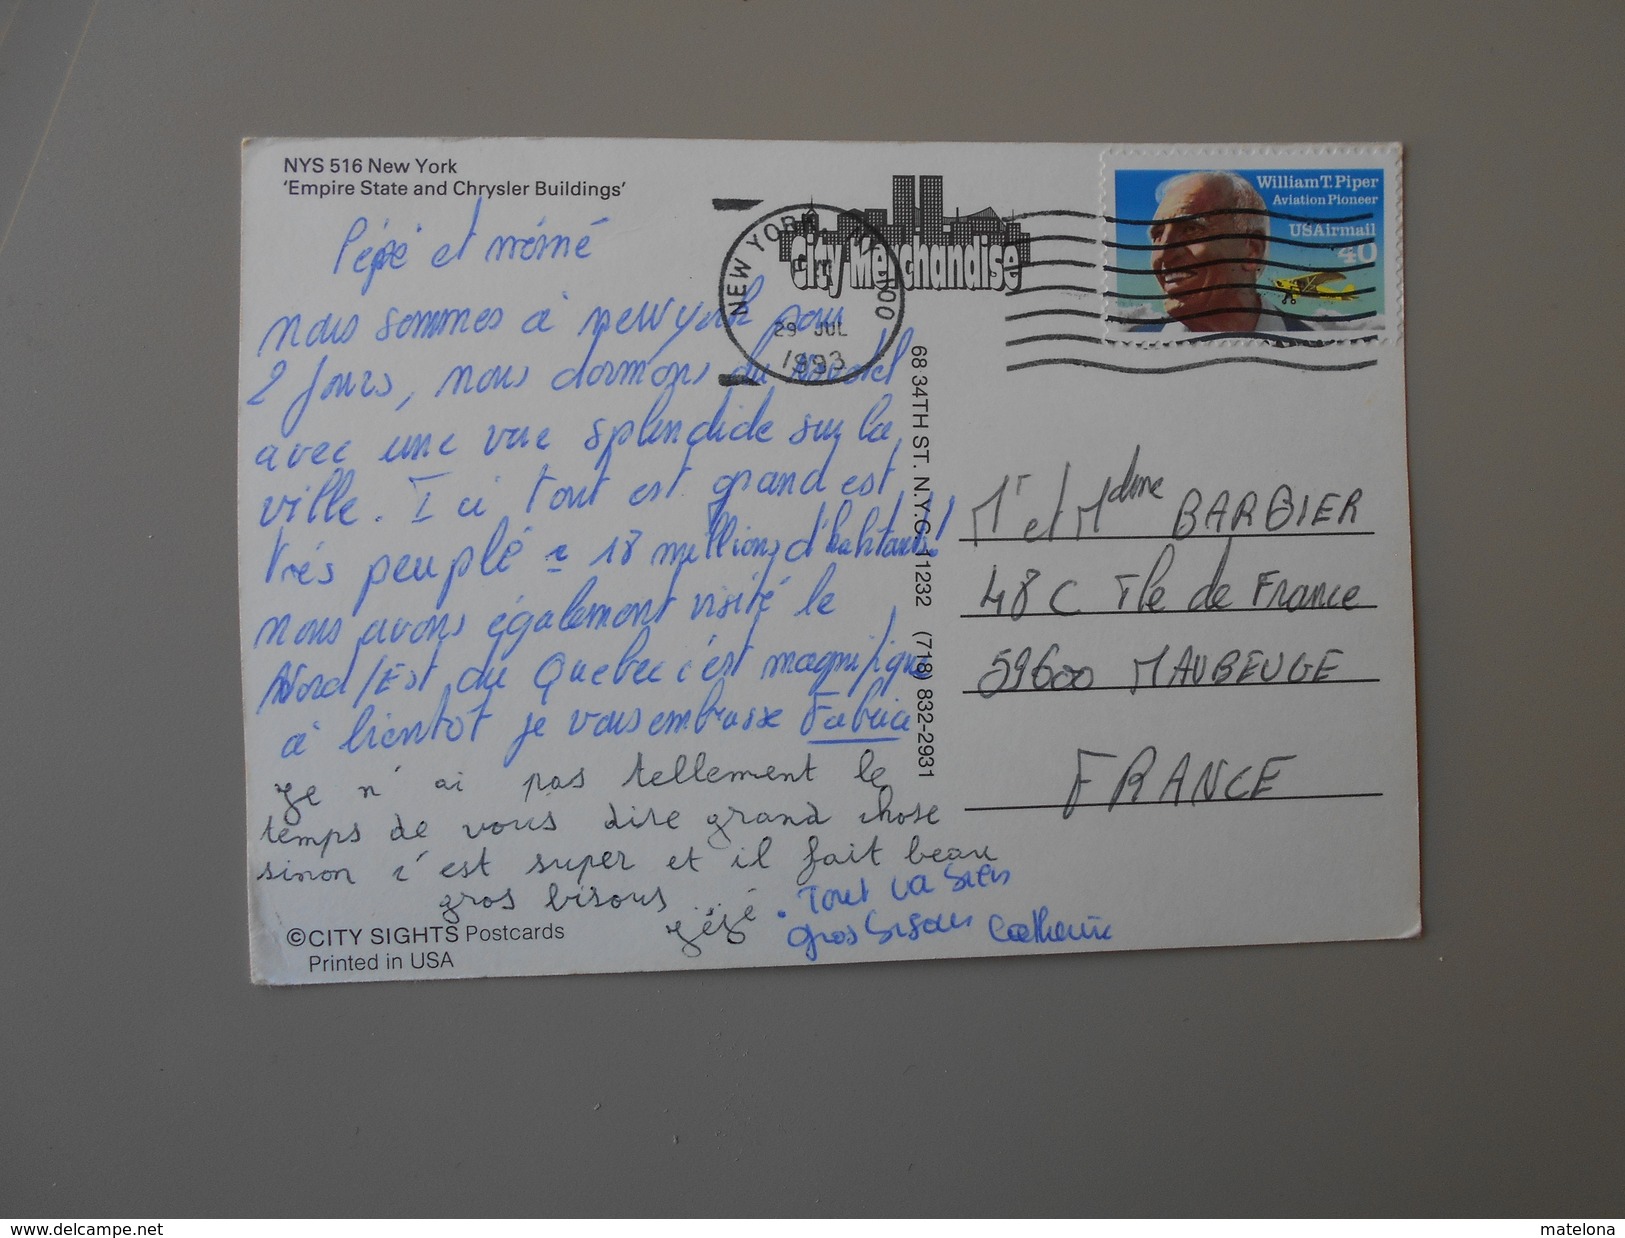 NYS 516 New York
'Empire State and Chrysler Buildings'
Pépé et mémé
nous sommes à new york pour
2 jours, nous dormons du novotel
avec une vue splendide sur la
ville. Ici tout est grand est
très peuplé = 18 millions d'habitants!!
nous avons également visité le
Nord/Est du Quebec c'est magnifique
à bientôt je vous embrasse Fabrice
Je n'ai pas tellement le
temps de vous dire grand chose
sinon c'est super et il fait beau
gros bisous Gégé
. Tout va bien
gros bisous Catherine
©CITY SIGHTS Postcards
Printed in USA
City Merchandise
68 34TH ST. N.Y.C. 11232 (718) 832-2931
NEW YORK, NY 100
29 JUL
1993
William T. Piper
Aviation Pioneer
USAirmail
40
Mr et Mdme BARBIER
48 C Ile de France
59600 MAUBEUGE
FRANCE
delcampe.net
matelona